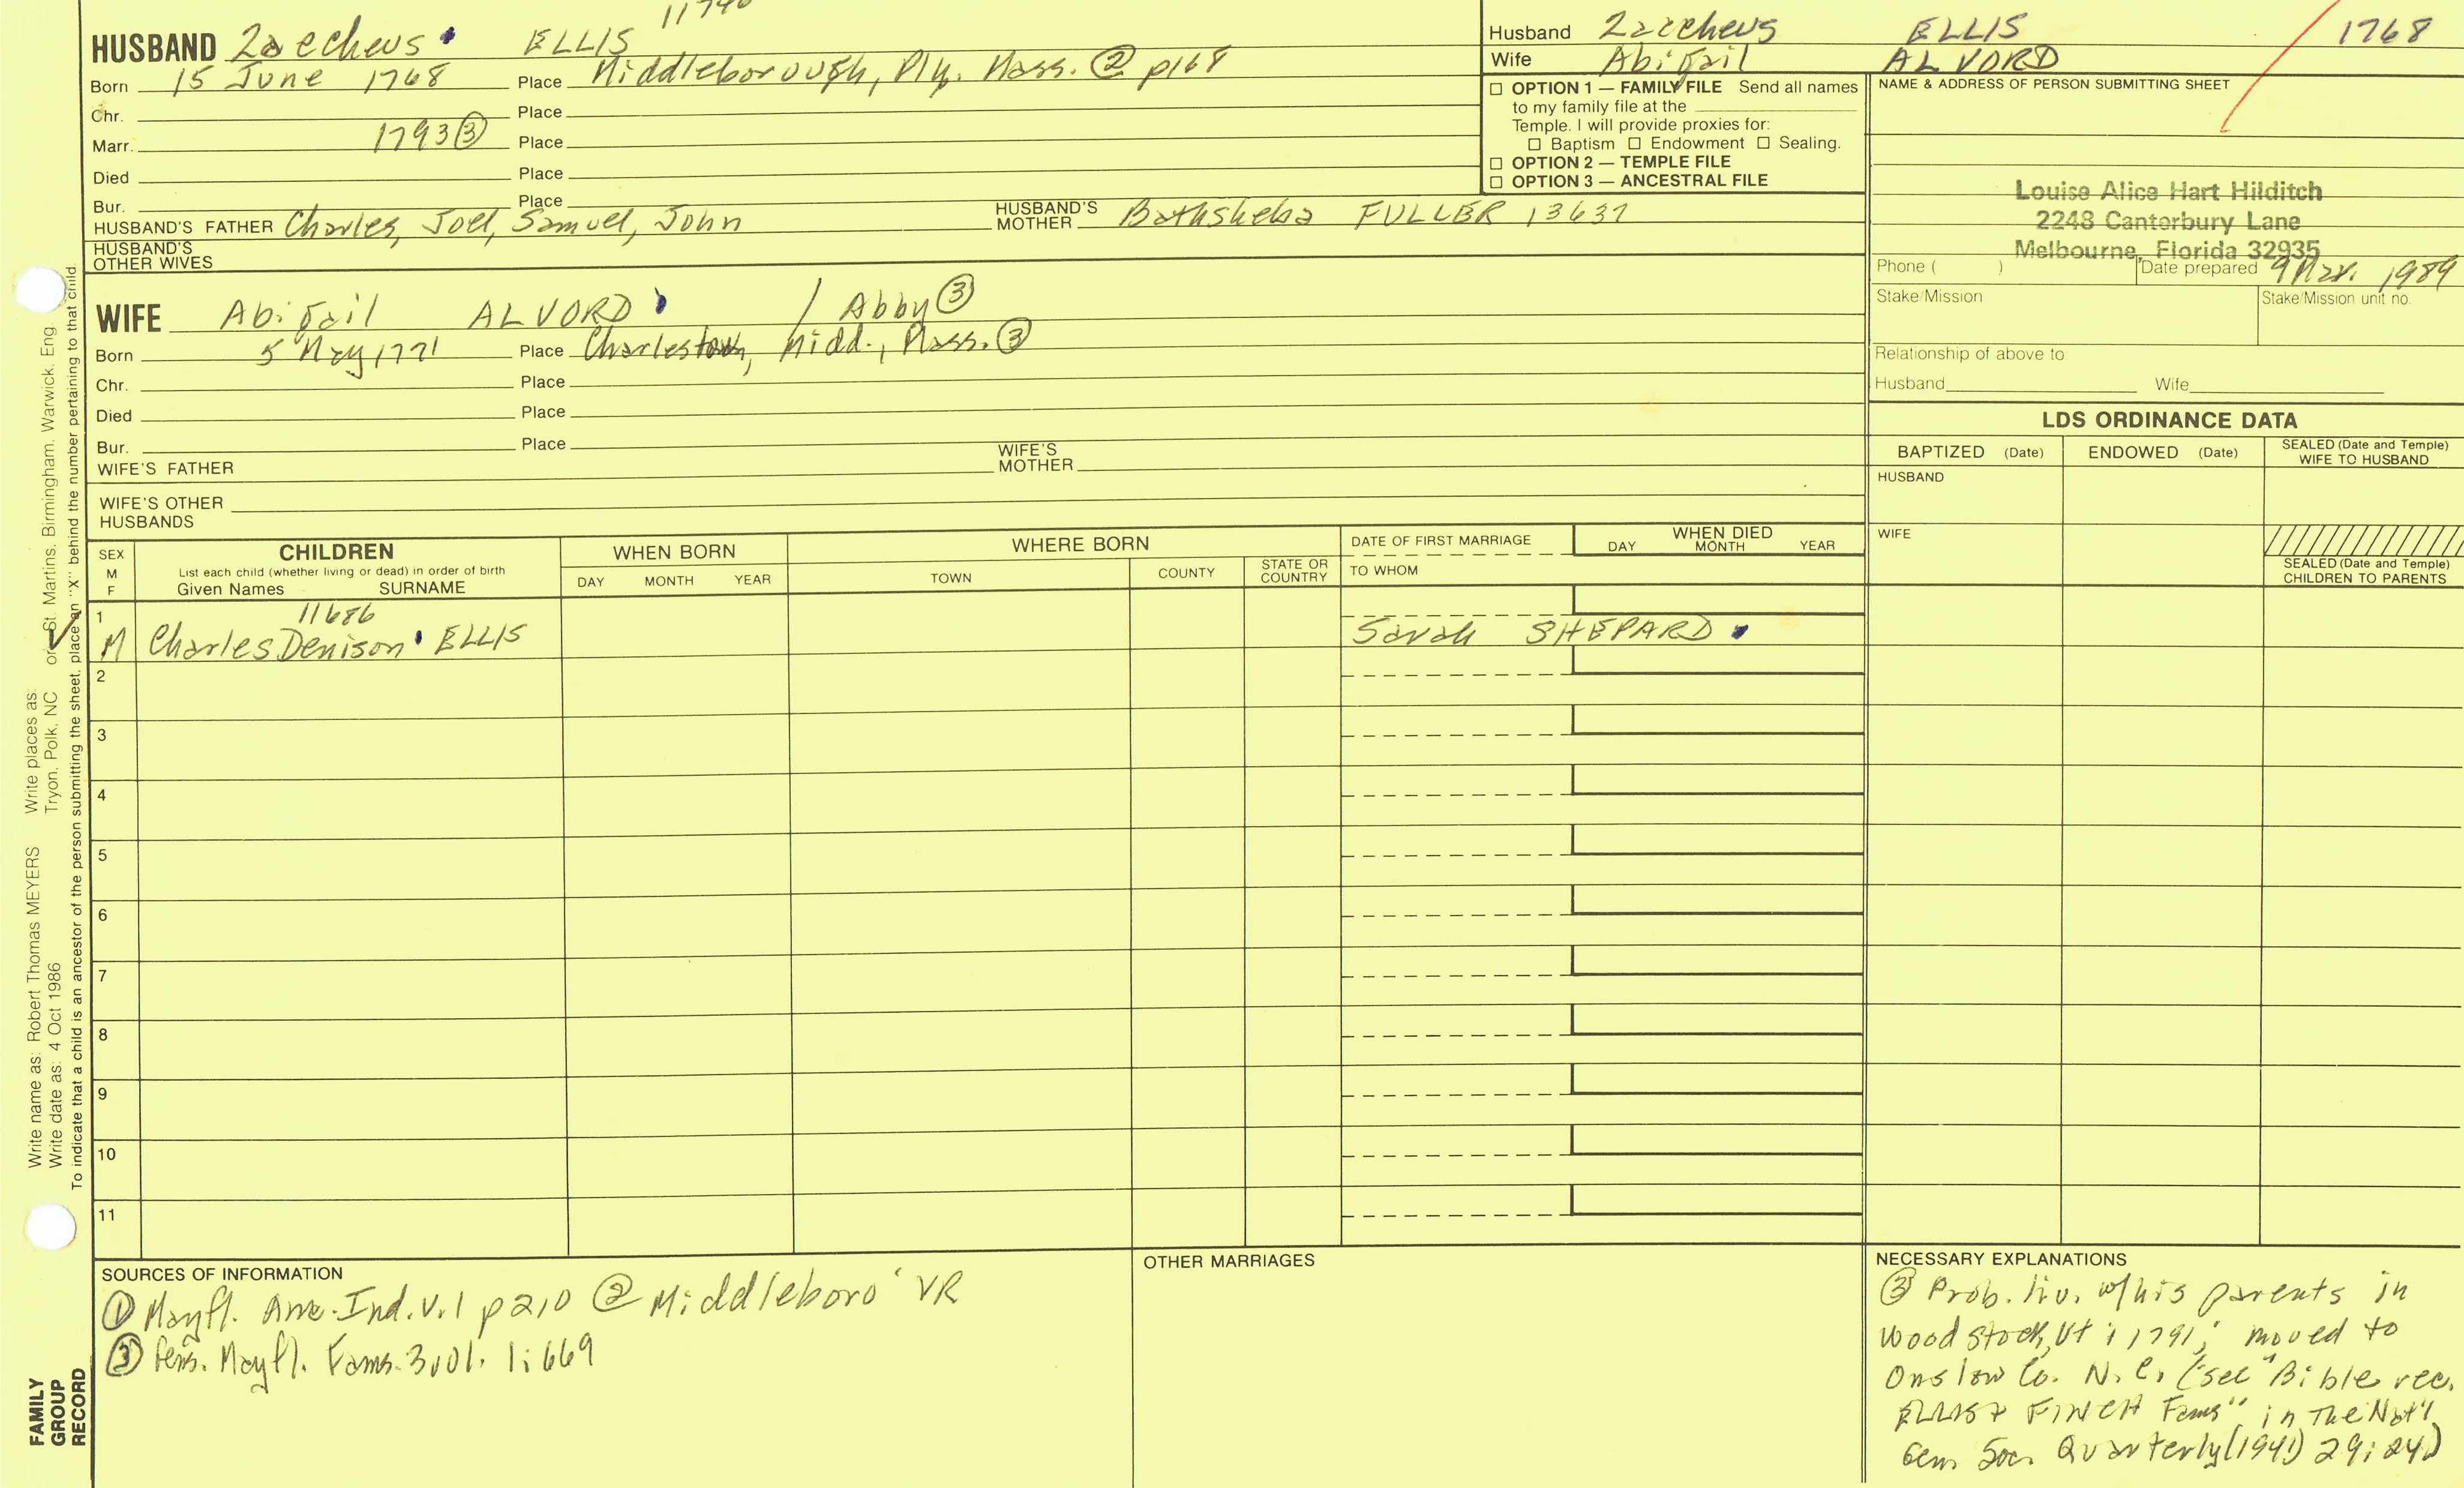 11740
HUSBAND Zaccheus ELLIS
Born 15 June 1768 Place Middleborough, Ply. Mass. ② p168
Chr. Place
Marr. 1793③ Place
Died Place
Bur. Place
HUSBAND'S FATHER Charles, Joel, Samuel, John HUSBAND'S MOTHER Bathsheba FULLER 13637
HUSBAND'S OTHER WIVES
WIFE Abigail ALVORD / Abby③
Born 5 May 1771 Place Charlestown, Midd., Mass.③
Chr. Place
Died Place
Bur. Place
WIFE'S FATHER WIFE'S MOTHER
WIFE'S OTHER HUSBANDS
Husband Zaccheus ELLIS 1768
Wife Abigail ALVORD
☐ OPTION 1 — FAMILY FILE Send all names
to my family file at the
Temple. I will provide proxies for:
☐ Baptism ☐ Endowment ☐ Sealing.
☐ OPTION 2 — TEMPLE FILE
☐ OPTION 3 — ANCESTRAL FILE
NAME & ADDRESS OF PERSON SUBMITTING SHEET
Louise Alice Hart Hilditch
2248 Canterbury Lane
Melbourne, Florida 32935
Phone ( ) Date prepared 9 Mar. 1989
Stake/Mission Stake/Mission unit no.
Relationship of above to:
Husband Wife
LDS ORDINANCE DATA
BAPTIZED (Date) ENDOWED (Date) SEALED (Date and Temple) WIFE TO HUSBAND
HUSBAND
WIFE
SEALED (Date and Temple)
CHILDREN TO PARENTS
SEX M F
CHILDREN
List each child (whether living or dead) in order of birth
Given Names SURNAME
WHEN BORN
DAY MONTH YEAR
WHERE BORN
TOWN COUNTY STATE OR COUNTRY
DATE OF FIRST MARRIAGE
TO WHOM
WHEN DIED
DAY MONTH YEAR
1 11686
M Charles Denison ELLIS Sarah SHEPARD
2
3
4
5
6
7
8
9
10
11
SOURCES OF INFORMATION
① Mayfl. Anc. Ind. V. 1 p 210 ② Middleboro' VR
③ Fams. Mayfl. Fams. 3 vol. 1: 669
OTHER MARRIAGES
NECESSARY EXPLANATIONS
③ Prob. liv. w/his parents in
Woodstock, Vt i 1791; moved to
Onslow Co. N.C. (see "Bible rec.
ELLIS + FINCH Fams" in The Nat'l
Gen. Soc. Quarterly (1941) 29: 24)
Write name as: Robert Thomas MEYERS Write places as: Tryon, Polk, NC or St. Martins, Birmingham, Warwick, Eng
Write date as: 4 Oct 1986
To indicate that a child is an ancestor of the person submitting the sheet, place an "X" behind the number pertaining to that child.
FAMILY
GROUP
RECORD